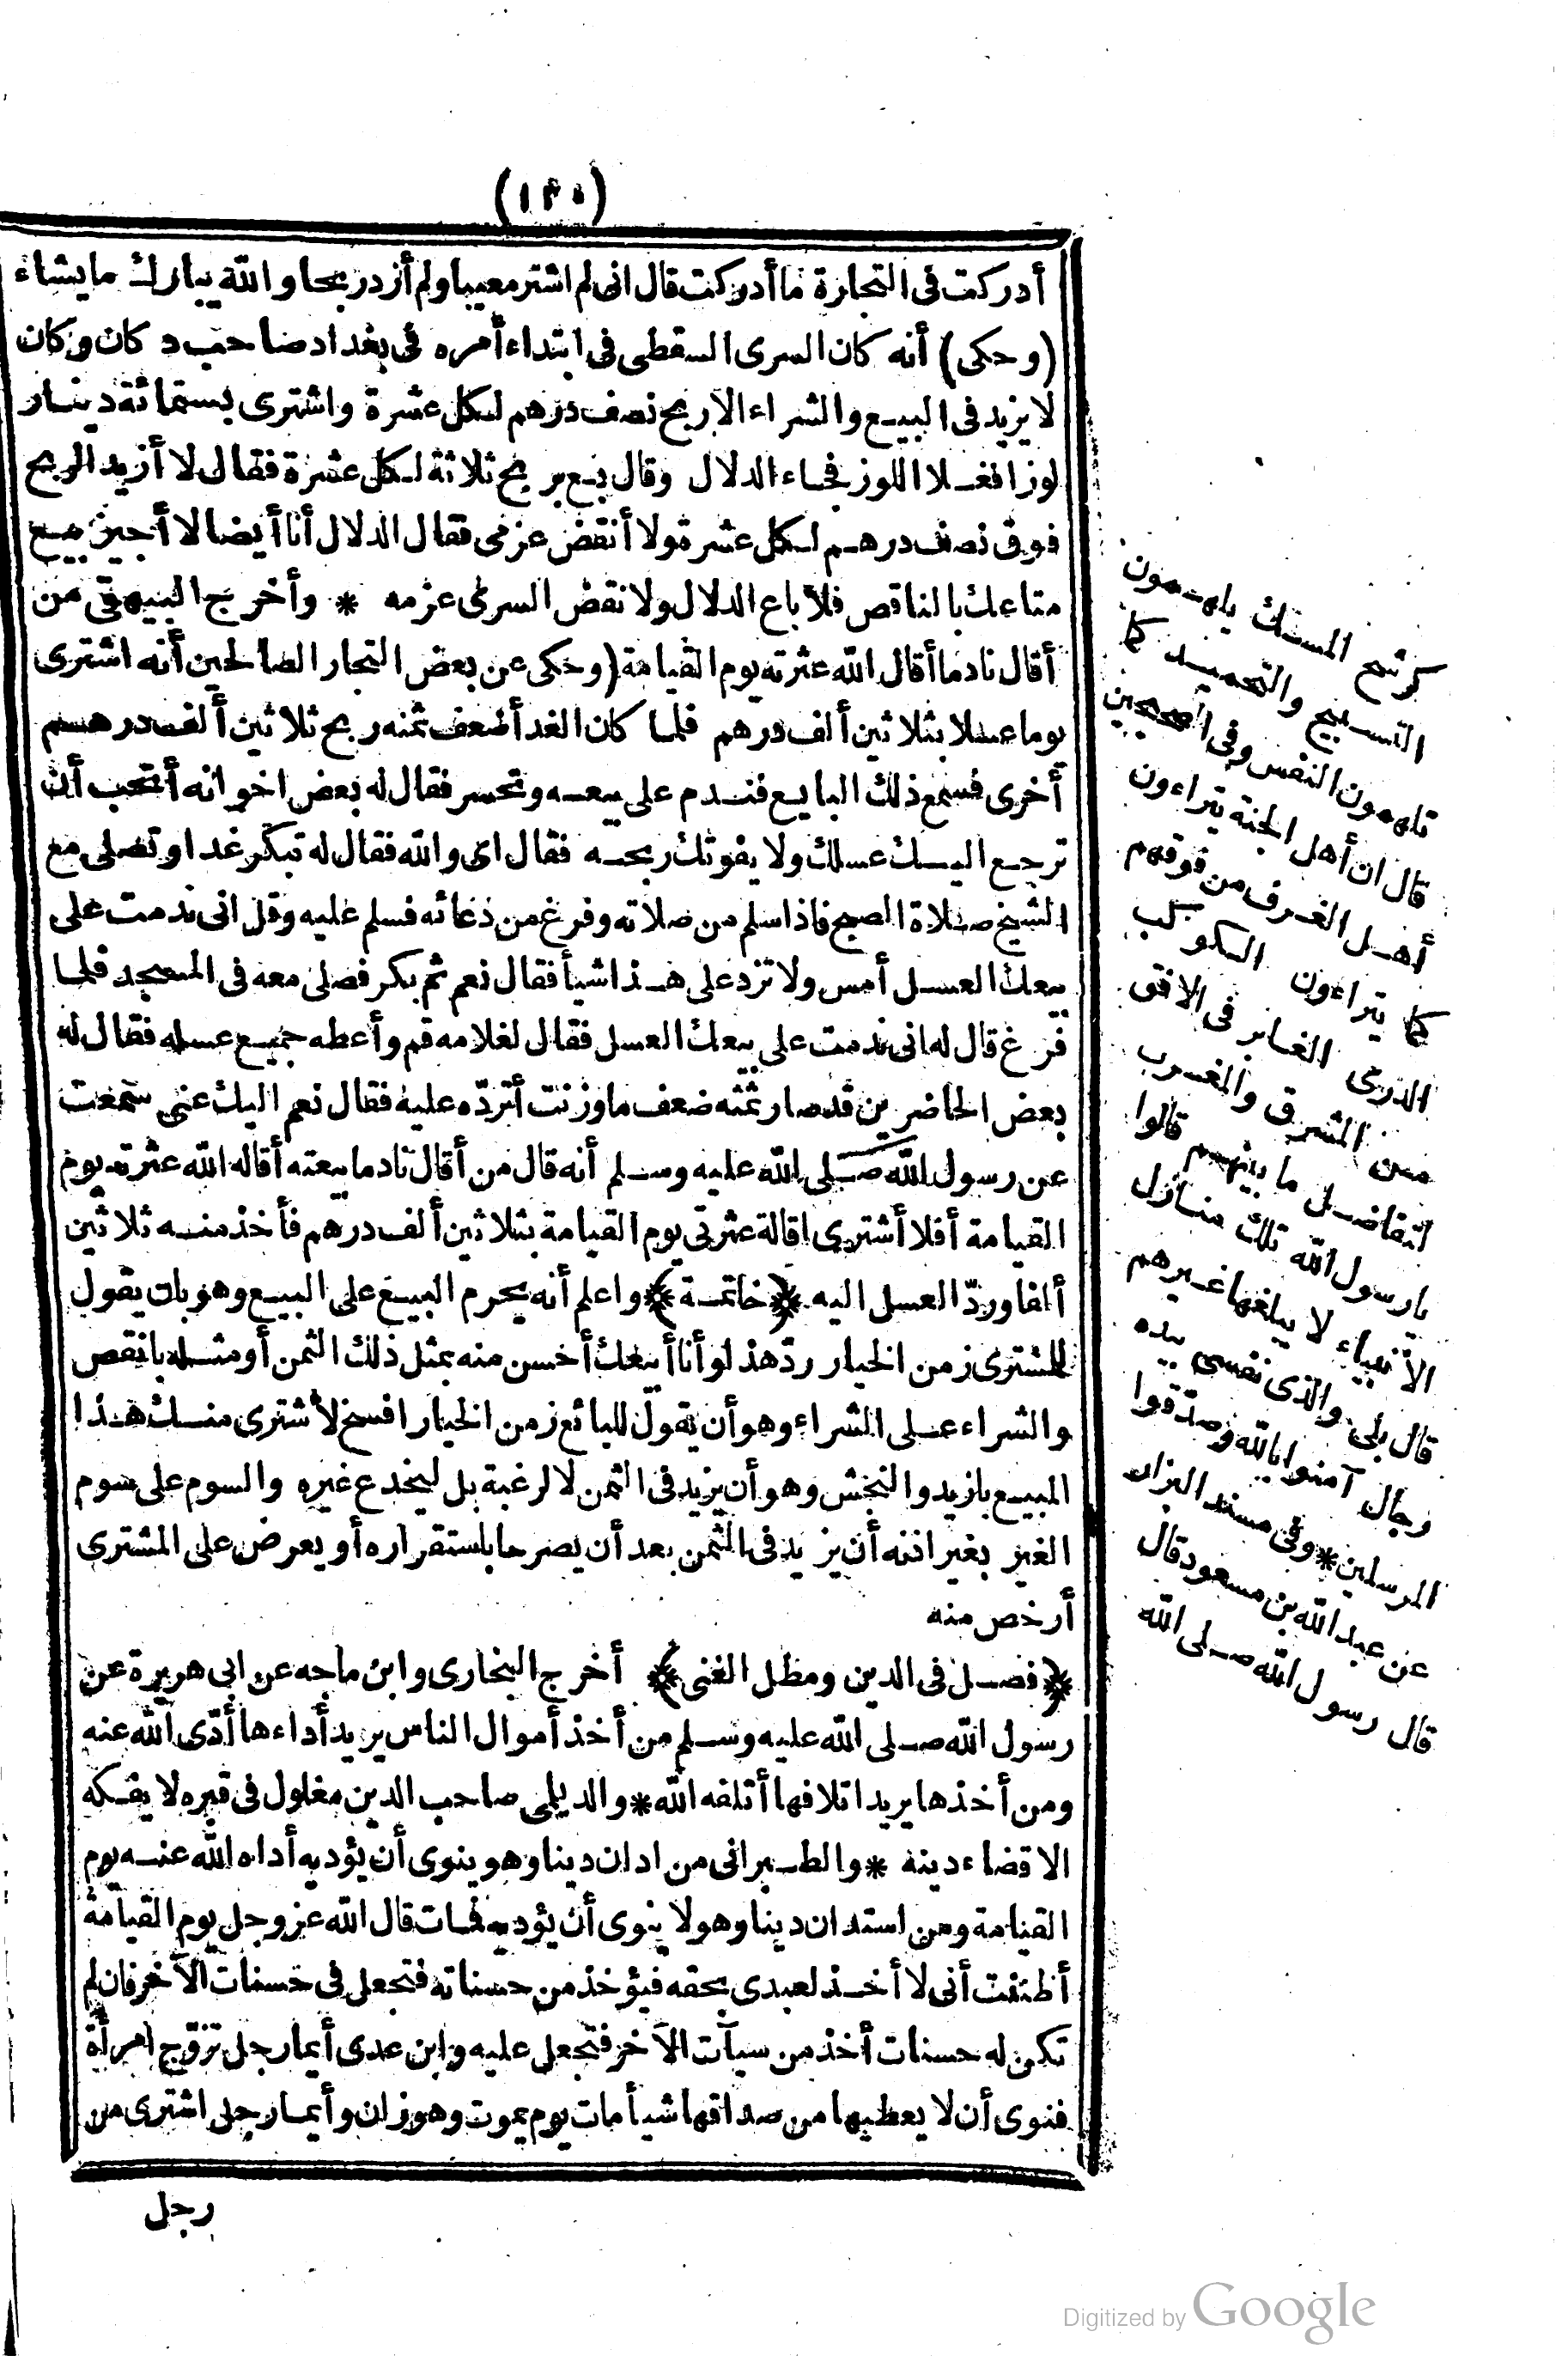 (١٣٠)
أدركت فى التجارة ما أدركت قال انى لم اشتر معيبا ولم أزد ربحا والله يبارك ما يشاء
(وحكى) أنه كان السرى السقطى فى ابتداء أمره فى بغداد صاحب دكان وكان
لا يزيد فى البيع والشراء الا ربح نصف درهم لكل عشرة واشترى بستمائة دينار
لوزا فغلا اللوز فجاء الدلال وقال بع بربح ثلاثة لكل عشرة فقال لا أزيد الربح
فوق نصف درهم لكل عشرة ولا أنقض عزمى فقال الدلال أنا أيضا لا أجيز بيع
متاعك بالناقص فلا باع الدلال ولا نقض السرى عزمه * وأخرج البيهقى من
أقال نادما أقال الله عثرته يوم القيامة (وحكى عن بعض التجار الصالحين أنه اشترى
يوما عسلا بثلاثين ألف درهم فلما كان الغد أضعف ثمنه ربح ثلاثين ألف درهم
أخرى فسمع ذلك البايع فندم على بيعه وتحسر فقال له بعض اخوانه أتحب أن
ترجع اليك عسلك ولا يفوتك ربحه فقال اى والله فقال له تبكر غدا وتصلى مع
الشيخ صلاة الصبح فاذا سلم من صلاته وفرغ من دعائه فسلم عليه وقل انى ندمت على
بيعك العسل أمس ولا تزد على هذا شيأ فقال نعم ثم بكر فصلى معه فى المسجد فلما
فرغ قال له انى ندمت على بيعك العسل فقال لغلامه قم وأعطه جميع عسله فقال له
بعض الحاضرين قد صار ثمنه ضعف ما وزنت أتردّه عليه فقال نعم اليك عنى سمعت
عن رسول الله صلى الله عليه وسلم أنه قال من أقال نادما بيعته أقاله الله عثرته يوم
القيامة أفلا أشترى اقالة عثرتى يوم القيامة بثلاثين ألف درهم فأخذ منه ثلاثين
ألفا وردّ العسل اليه ﴿خاتمة﴾ واعلم أنه يحرم البيع على البيع وهو بان يقول
للمشترى زمن الخيار ردّ هذ لو أنا أبيعك أحسن منه بمثل ذلك الثمن أو مثله بانقص
والشراء على الشراء وهو أن يقول للبائع زمن الخيار افسخ لأشترى منك هذا
المبيع بازيد والنجش وهو أن يزيد فى الثمن لا لرغبة بل ليخدع غيره والسوم على سوم
الغير بغير اذنه أن يزيد فى الثمن بعد أن يصرحا باستقراره أو يعرض على المشترى
أرخص منه
﴿فصل فى الدين ومطل الغنى﴾ أخرج البخارى وابن ماجه عن ابى هريرة عن
رسول الله صلى الله عليه وسلم من أخذ أموال الناس يريد أداءها أدّى الله عنه
ومن أخذها يريد اتلافها أتلفه الله * والديلمى صاحب الدين مغلول فى قبره لا يفكه
الا قضاء دينه * والطبرانى من ادان دينا وهو ينوى أن يؤديه أداه الله عنه يوم
القيامة ومن استدان دينا وهو لا ينوى أن يؤديه فمات قال الله عز وجل يوم القيامة
أظننت أنى لا أخذ لعبدى بحقه فيؤخذ من حسناته فتجعل فى حسنات الآخر فان لم
تكن له حسنات أخذ من سيآت الآخر فتجعل عليه وابن عدى أيما رجل تزوّج امرأة
فنوى أن لا يعطيها من صداقها شيأ مات يوم يموت وهو زان وأيما رجل اشترى من
رجل
كرشح المسك يلهمون
التسبيح والتحميد كما
تلهمون النفس وفى الصحيحين
قال ان أهل الجنة يتراءون
أهل الغرف من فوقهم
كما يتراءون الكوكب
الدرى الغابر فى الافق
من المشرق والمغرب
لتفاضل ما بينهم قالوا
يا رسول الله تلك منازل
الأنبياء لا يبلغها غيرهم
قال بلى والذى نفسى بيده
رجال آمنوا بالله وصدّقوا
المرسلين * وفى مسند البزار
عن عبد الله بن مسعود قال
قال رسول الله صلى الله
Digitized by Google